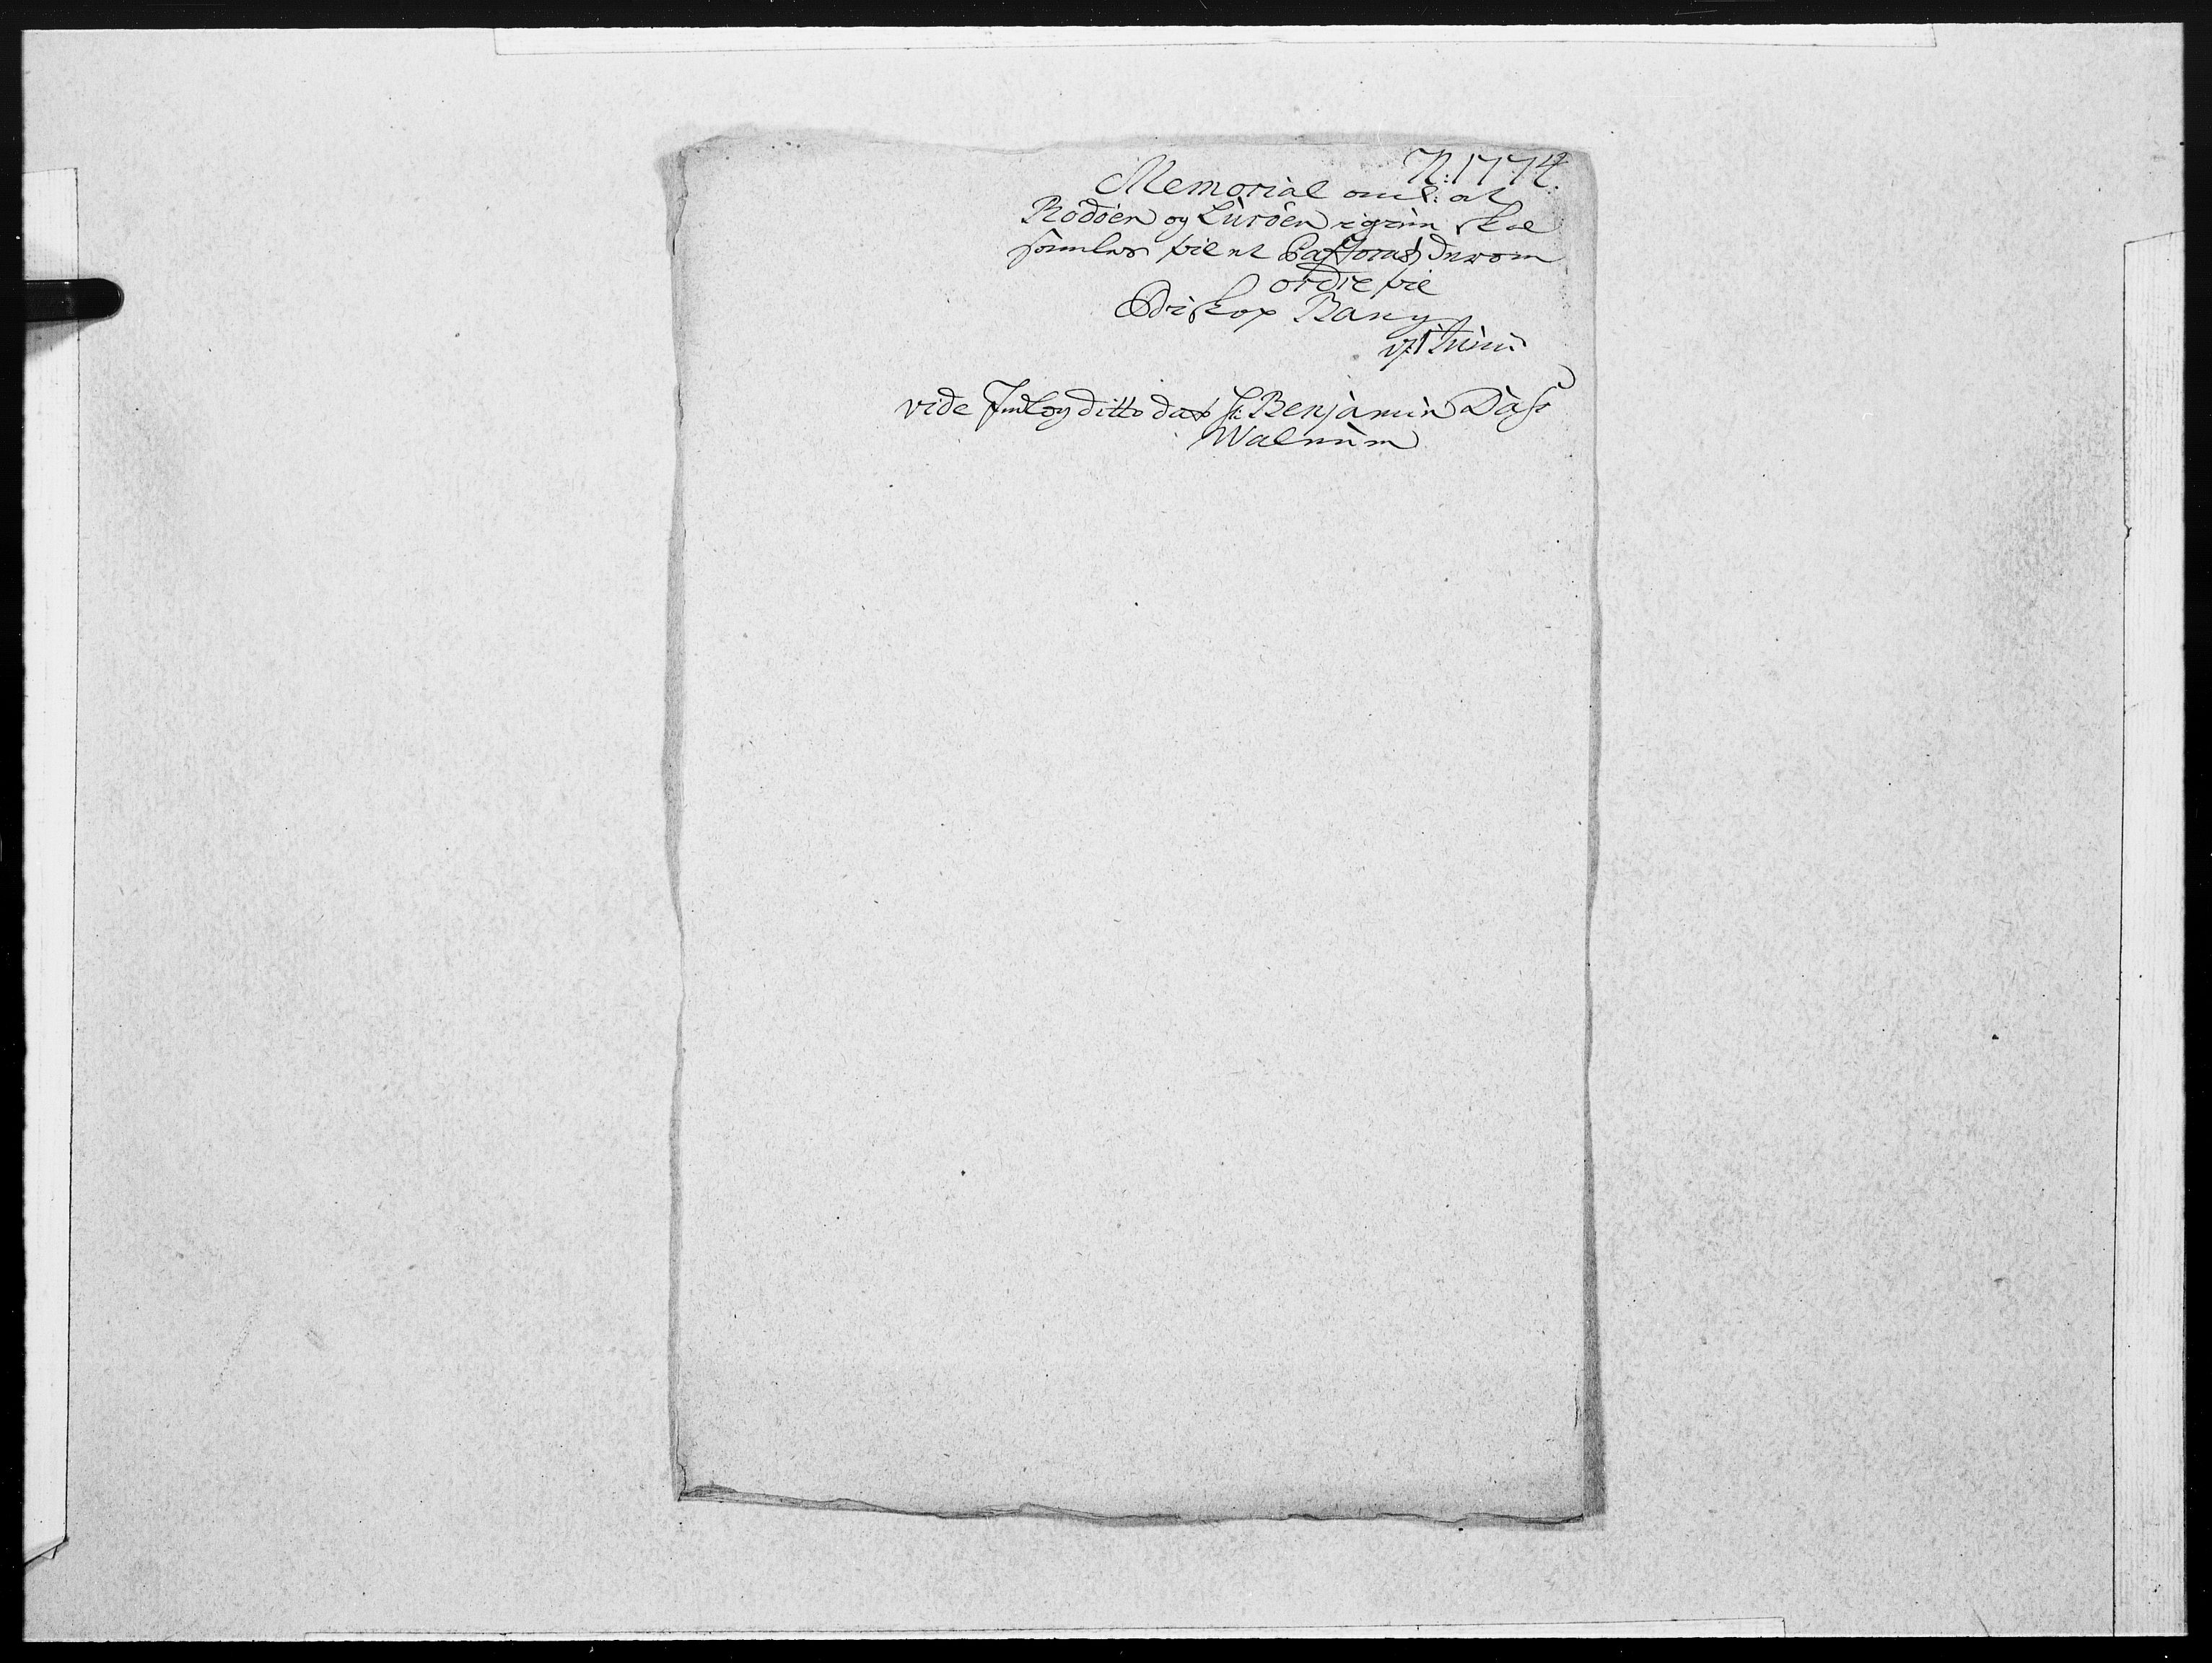 N: 1774.
Memorial anl: at
Rödöen og Luröen igien skal
samles til et Pastorat, derom
ordre til
Biskop Bang
17 Junii
vide Indlæg ditto dat. Hr. Benjamin Dass
Walnum